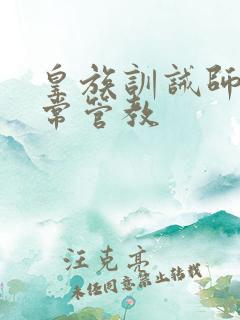 皇族訓誡師
常管教
汪克亮
未经同意禁止转载